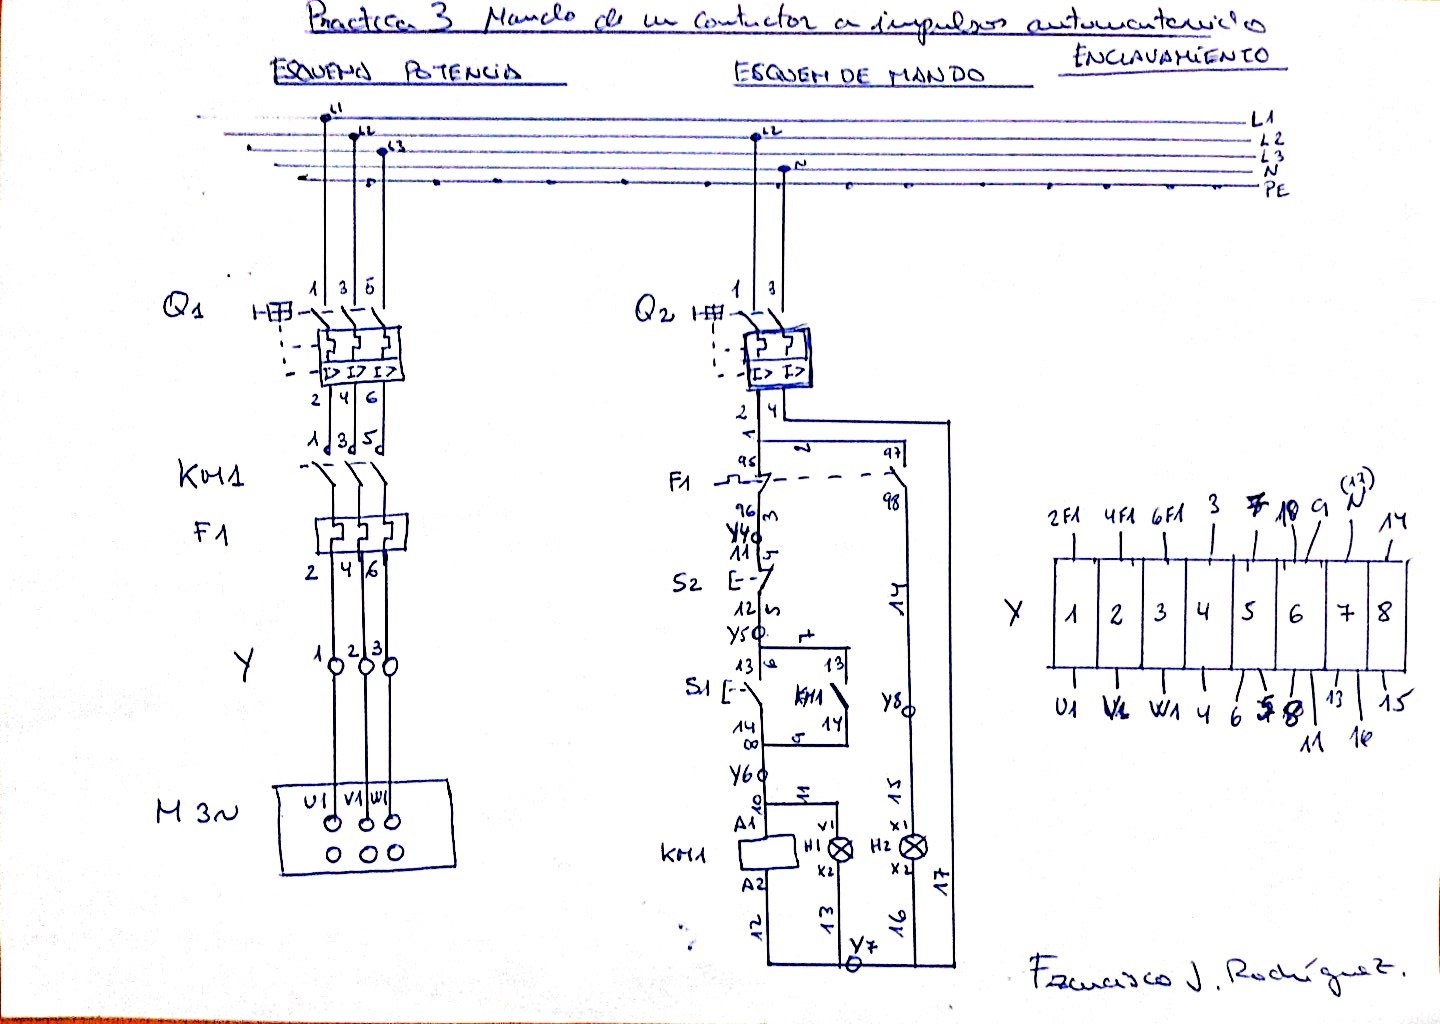 Practica 3 Mando de un contactor a impulsos automantenido
ESQUEMA POTENCIA ESQUEM DE MANDO ENCLAVAMIENTO
L1 L1
L2 L2 L2
L3 L3
N N
PE
1 3 5 1 3
Q1 Q2
I> I> I> I> I>
2 4 6 2 4
1 3 5 1 2
95 97
KM1 F1
96 3 98
F1 Y4
2 4 6 11
S2
12 5 14
Y5
Y 1 2 3 7
13 6 13
S1 KM1 Y8
14 14
8
Y6
10 11 15
U1 V1 W1 A1 X1
M 3~ KM1 H1 H2
A2 X2 X2
12 13 16 17
Y7
2F1 4F1 6F1 3 7 10 9 N (12) 14
Y 1 2 3 4 5 6 7 8
U1 V1 W1 4 6 8 11 13 16 15
Francisco J. Rodríguez.